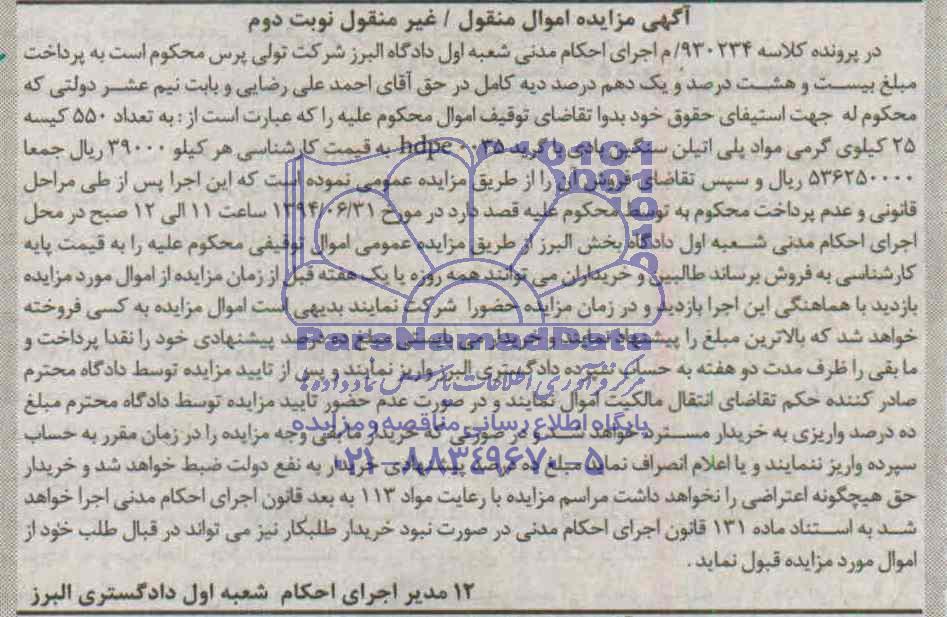 آگهی مزایده اموال منقول / غیر منقول نوبت دوم
در پرونده کلاسه ۹۳۰۲۳۴/ م اجرای احکام مدنی شعبه اول دادگاه البرز شرکت تولی پرس محکوم است به پرداخت
مبلغ بیست و هشت درصد و یک دهم درصد دیه کامل در حق آقای احمد علی رضایی و بابت نیم عشر دولتی که
محکوم له جهت استیفای حقوق خود بدوا تقاضای توقیف اموال محکوم علیه را که عبارت است از : به تعداد ۵۵۰ کیسه
۲۵ کیلوی گرمی مواد پلی اتیلن سنگین بادی با گرید ۰۰۳۵ hdpe به قیمت کارشناسی هر کیلو ۳۹۰۰۰ ریال جمعا
۵۳۶۲۵۰۰۰۰ ریال و سپس تقاضای فروش آن را از طریق مزایده عمومی نموده است که این اجرا پس از طی مراحل
قانونی و عدم پرداخت محکوم به توسط محکوم علیه قصد دارد در مورخ ۱۳۹۴/۰۶/۳۱ ساعت ۱۱ الی ۱۲ صبح در محل
اجرای احکام مدنی شعبه اول دادگاه بخش البرز از طریق مزایده عمومی اموال توقیفی محکوم علیه را به قیمت پایه
کارشناسی به فروش برساند طالبین و خریداران می توانند همه روزه یا یک هفته قبل از زمان مزایده از اموال مورد مزایده
بازدید با هماهنگی این اجرا بازدید و در زمان مزایده حضورا شرکت نمایند بدیهی است اموال مزایده به کسی فروخته
خواهد شد که بالاترین مبلغ را پیشنهاد نمایند و خریدار می بایستی مبلغ ده درصد پیشنهادی خود را نقدا پرداخت و
ما بقی را ظرف مدت دو هفته به حساب سپرده دادگستری البرز واریز نمایند و پس از تایید مزایده توسط دادگاه محترم
صادر کننده حکم تقاضای انتقال مالکیت اموال نمایند و در صورت عدم حضور تایید مزایده توسط دادگاه محترم مبلغ
ده درصد واریزی به خریدار مسترد خواهد شد و در صورتی که خریدار مابقی وجه مزایده را در زمان مقرر به حساب
سپرده واریز ننمایند و یا اعلام انصراف نماید مبلغ ده درصد پیشنهادی خریدار به نفع دولت ضبط خواهد شد و خریدار
حق هیچگونه اعتراضی را نخواهد داشت مراسم مزایده با رعایت مواد ۱۱۳ به بعد قانون اجرای احکام مدنی اجرا خواهد
شد به استناد ماده ۱۳۱ قانون اجرای احکام مدنی در صورت نبود خریدار طلبکار نیز می تواند در قبال طلب خود از
اموال مورد مزایده قبول نماید .
۱۲ مدیر اجرای احکام شعبه اول دادگستری البرز
ParsNamadData
مرکز فرآوری اطلاعات پارس نماد داده ها
پایگاه اطلاع رسانی مناقصه و مزایده
۰۲۱-۸۸۳۴۹۶۷۰-۵